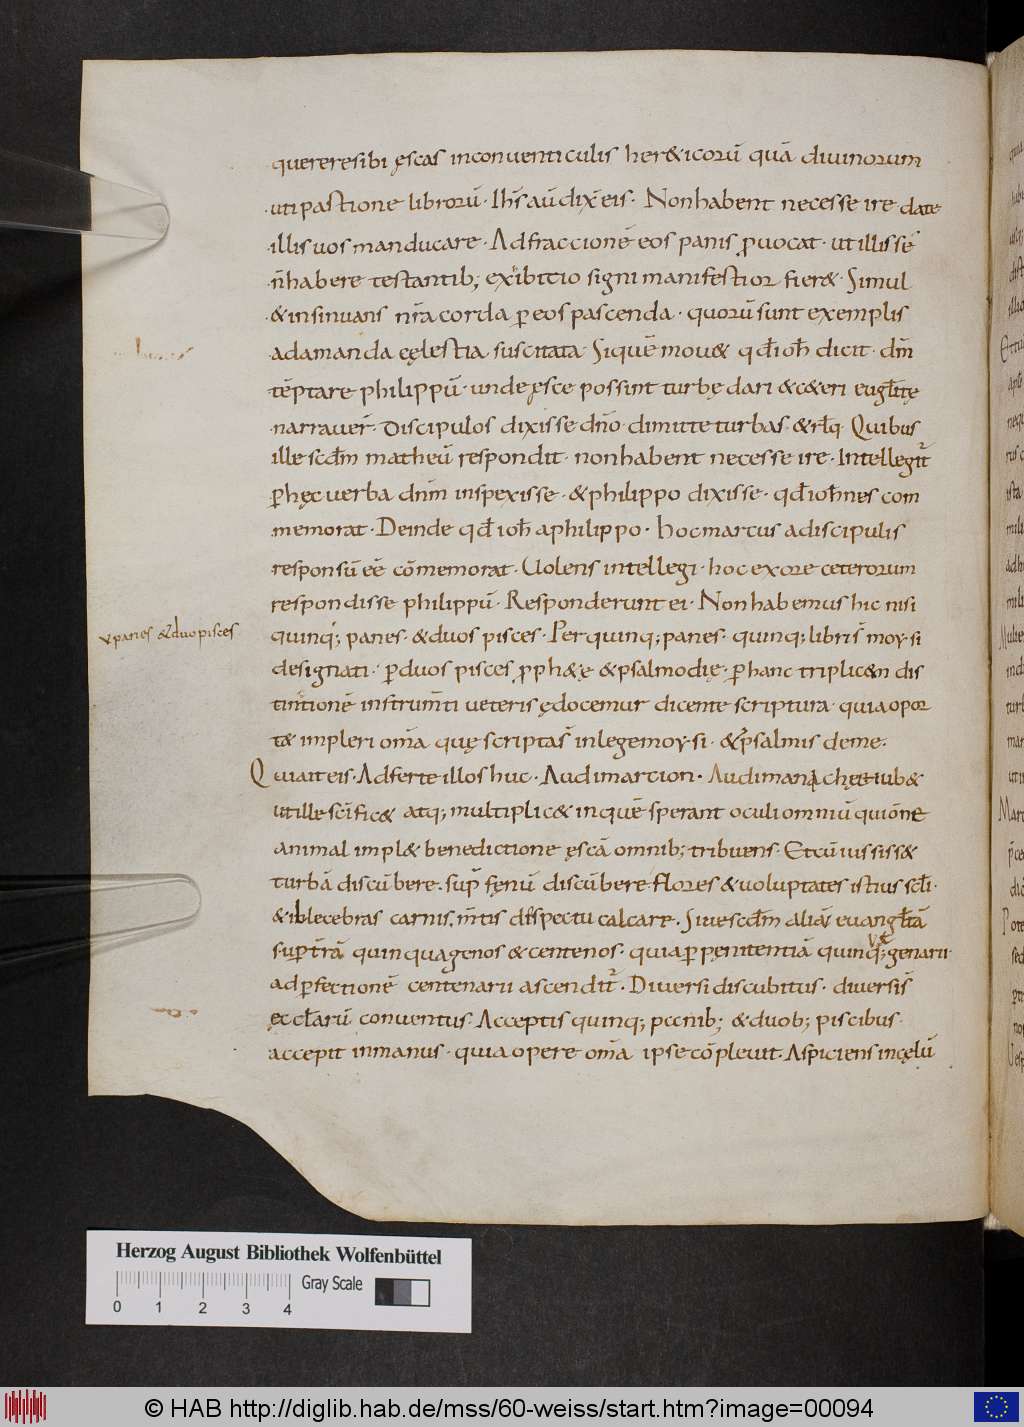 querere sibi ęscas inconventiculis her&icorū quā divinorum
uti pastione librorū. Ihs̄ aū dix̄ eis. Non habent necesse ire date
illis vos manducare. Ad fraccionē eos panis ꝓvocat. ut illis sē
n̄ habere testantib; exibitio signi manifestior fier&. Simul
& insinuans nr̄a corda ꝑ eos pascenda. quorū sunt exemplis
adamanda cęlestia suscitata. Si quē mov& qd̄ ioh̄ dicit. dn̄m
tēptare philippū. unde ęsce possint turbę dari & c&eri eugl̄tę
narraver̄. Discipulos dixisse dn̄o dimitte turbas. & rl̄q. Quibus
ille scd̄m matheū respondit. non habent necesse ire. Intellegit᷑
ꝑ hęc verba dn̄m inspexisse. & philippo dixisse. qd̄ ioh̄nes com
memorat. Deinde qd̄ ioh̄ a philippo. hoc marcus a discipulis
responsū eē cōmemorat. Volens intellegi. hoc ex ore ceterorum
respondisse philippū. Responderunt ei. Non habemus hic nisi
v panes & duo pisces
quinq; panes. & duos pisces. Per quinq; panes. quinq; libris̄ moysi
designati. ꝑ duos pisces ꝓph&ę & psalmodię. ꝑ hanc triplic&n dis
tintionē instrum̄ti veteris ędocemur dicente scriptura. quia opor
t& impleri om̄a quę scripta s̄ in lege moysi. & psalmis de me.
Qui ait eis. Adferte illos huc. Audi marcion. Audi manichęe iub&
ut ille sc̄ific& atq; multiplic& in quē sperant oculi omniū qui ōne
animal impl& benedictione ęscā omnib; tribuens. Et cū iussiss&
turbā discūbere. sup̄ fęnū discūbere flores & voluptates istius scl̄i.
& illecebras carnis. m̄tis despectu calcare. Sive scd̄m aliā evangl̄tā
suꝑ tr̄rā quinquagenos & centenos. quia ꝑ pęnitentiā quinq;genarii
ad ꝑfectionē centenarii ascendit᷑. Diversi discubitus. diversis̄
ęccl̄arū conventus. Acceptis quinq; panib; & duob; piscibus.
accepit in manus. quia opere om̄a ipse cōplevit. Aspiciens in cęlū
Herzog August Bibliothek Wolfenbüttel
Gray Scale
0 1 2 3 4
© HAB http://diglib.hab.de/mss/60-weiss/start.htm?image=00094